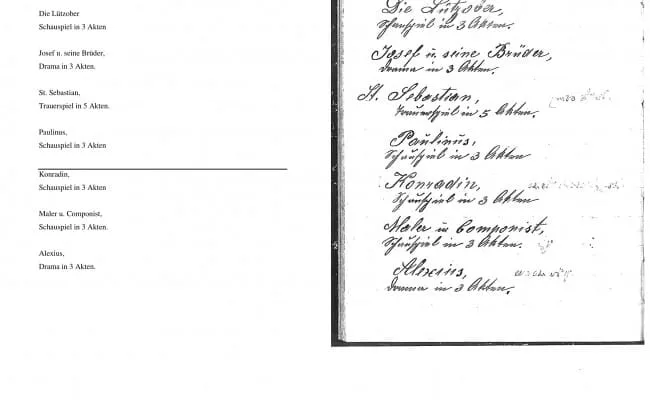 Die Lützober
Schauspiel in 3 Akten
Josef u. seine Brüder,
Drama in 3 Akten.
St. Sebastian,
Trauerspiel in 5 Akten.
Paulinus,
Schauspiel in 3 Akten
Konradin,
Schauspiel in 3 Akten
Maler u. Componist,
Schauspiel in 3 Akten.
Alexius,
Drama in 3 Akten.
Die Lützober,
Schauspiel in 3 Akten.
Josef u. seine Brüder,
Drama in 3 Akten.
St. Sebastian,
Trauerspiel in 5 Akten.
Paulinus,
Schauspiel in 3 Akten
Konradin,
Schauspiel in 3 Akten
Maler u Componist,
Schauspiel in 3 Akten.
Alexius,
Drama in 3 Akten.